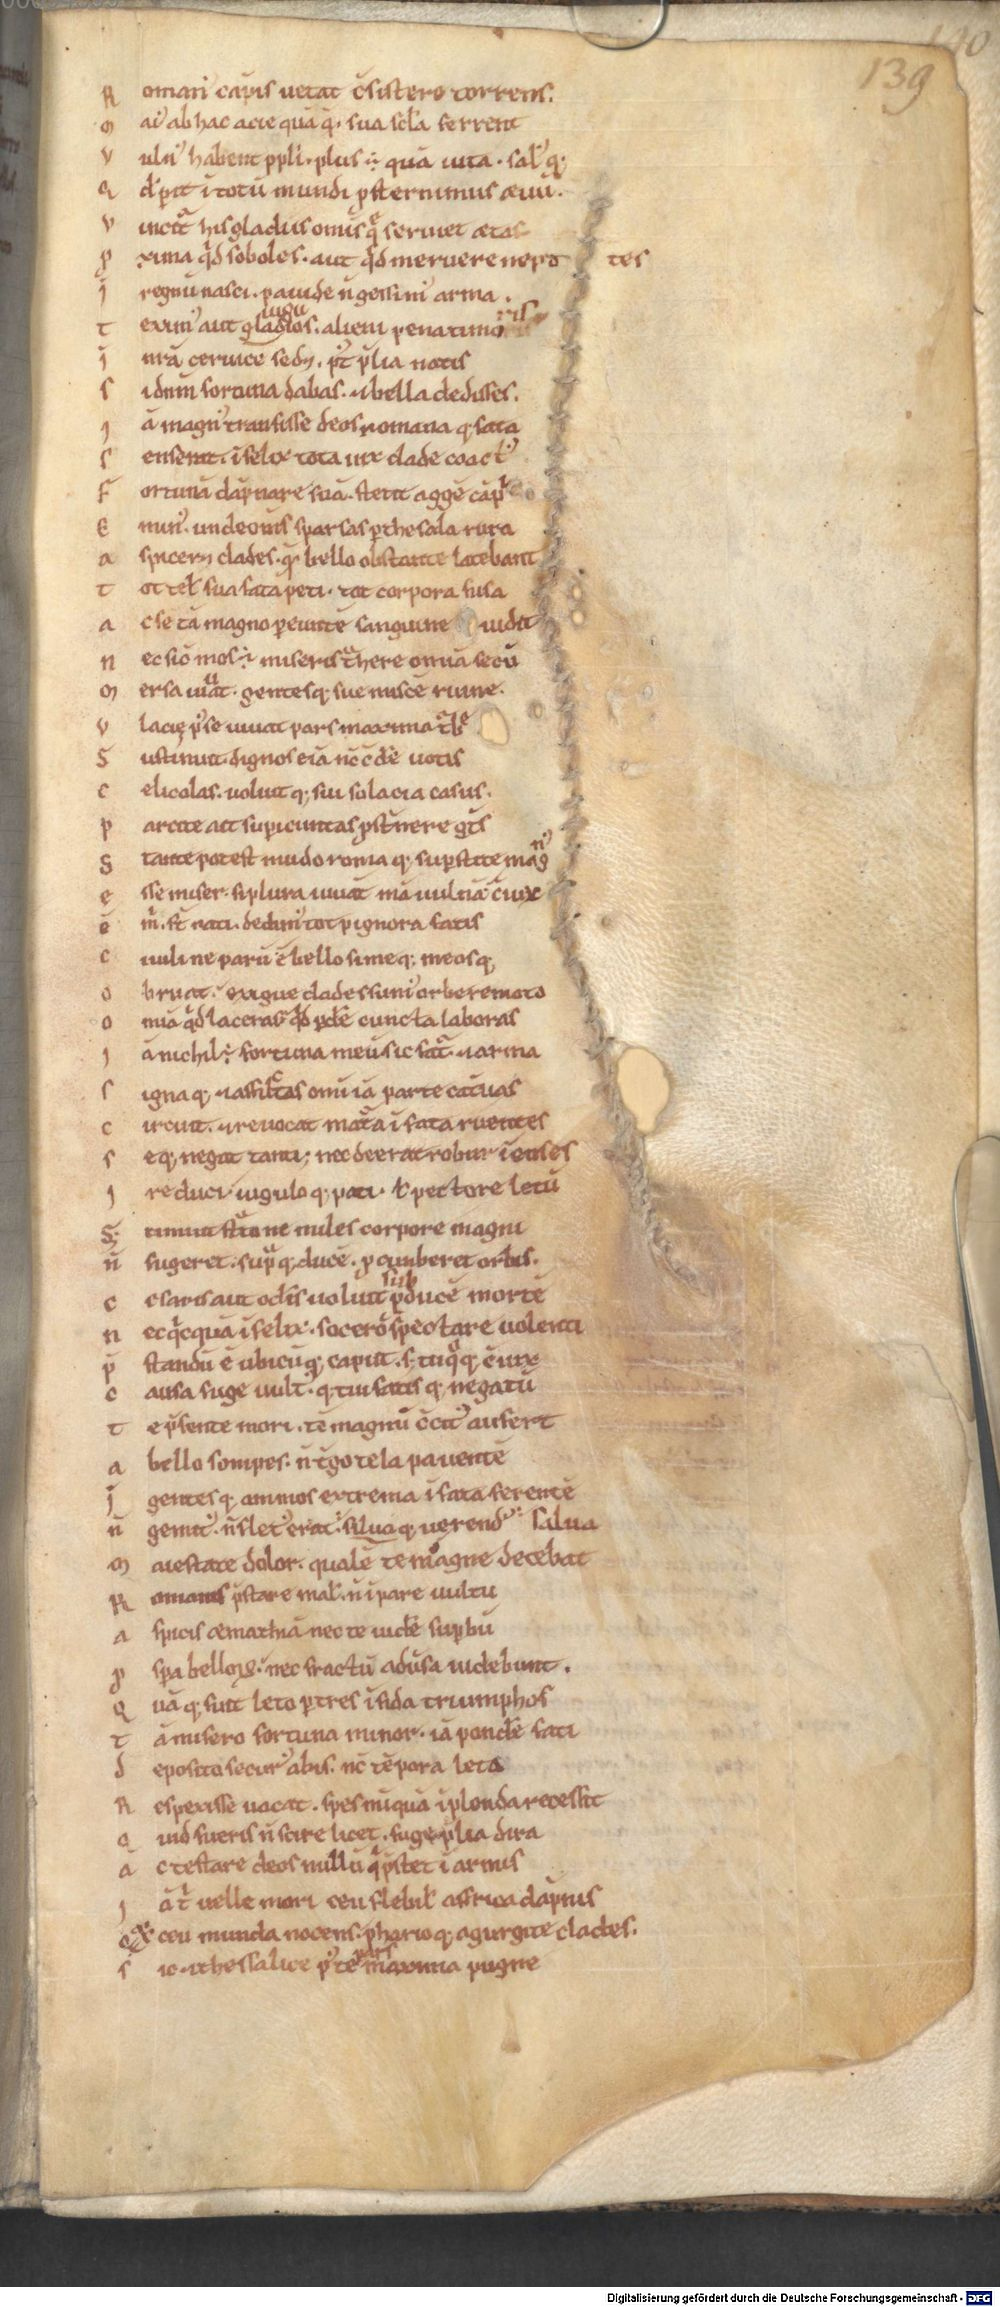 139
R omani cāpis uetat c̄sistero torrens.
M ai' ab hac acie quā q̇. sua sc̄la ferrent
V uln' habent ppli. plus ÷ quā uita. sal' q;
Q d' pit ī totū mundi psternimus æuū.
V incit' his gladiis om̄is q̄ seruiet ætas
P xima qd̄ soboles. aut qd̄ meruere nepo tes
I regnū nasci. pauide n̄ gessim' arma.
T exim' aut iugulos. alieni pena timoris
I nrā ceruice sed;. p't p̄lia natis
S i dn̄m fortuna dabas. ⁊ bella dedisses.
I ā magn' transisse deos romana q; fata
S enserat. īfelix tota uix clade coact'
F ortunā dāpnare suā. stetit aggē cāp
E min'. unde om̄is sparsas p thesala rura
A spiceret clades. q̄ bello obstante latebant
T ot tel' sua fata peti. tot corpora fusa
A c se tā magno peuntē sanguine uidit
N ec sic̄ mos ÷ miseris t̄here omīa secū
M ersa iuuat. gentesq; sue miscē ruine.
V t lacię p' se uiuat pars maxima t̄be
S ustinuit. dignos etiā nc̄ c̄dē uotis
C elicolas. uoluit q; sui solacia casus.
P arcite ait supi cuntas pst̄nere gt̄s
S tante potest mūdo roma q; supstite magn'
E sse miser. si plura iuuāt mā uulnā c̄iux
E m̄. st̄ nati. dedim' tot pignora fatis
C iuili ne parū ē bello si me q; meosq;
O bruat. exigue clades sum' orbe remoto
O mīa qd̄ laceras' qd̄ pdē cuncta laboras
I ā nichil ÷ fortuna meū sic fat'. ⁊ arma
S igna q; ⁊ afflictas omī iā parte cateruas
C ircuit. ⁊ reuocat mat̄a ī fata ruentes
S eq; negat tanti; nec deerat robur ī enses
I re duci. iugulo q; pati. l' pectore letū
S; timuit st̄to ne miles corpore magni
N̄ fugeret. supq; ducē. pcumberet orbis.
C esaris aut oclis uoluit subducē mortē
N ecqc̄quā īfelix. socero spectare uolenti
P̄ standū ē ubicūq; caput. s; tu qq; c̄iux
C ausa fuge uult'. q; tui fatis q; negatū
T e p̄sente mori. tē magnū c̄cit' aufert
A bello sonipes. n̄ t̄go tela pauentē
I gentesq; animos extrema ī fata ferentē
N̄ gemit'. n̄ flet' erat. silua q; uerend' salua
M aiestate dolor. qualē te magne decebat
R omanis p̄stare mal'. n̄ īpare uultu
A spicis æmathiā nec te uidē supbū
P spa bello℞. nec fractū adūsa uidebunt.
Q uā q; fuit leto p tres īfida triumphos
T ā misero fortuna minor. iā pondē fati
D eposito secur' abis. nc̄ tēpora leta
R espexisse uacat. spes nūquā īplenda recessit
Q uid fueris n̄ scire licet. fuge p̄lia dira
A c testare deos nullū q̄ p̄stet ī armis
I ā t' uelle mori ceu flebil' affrica dāpnis
E x ceu munda nocens. phario q; a gurgite clades.
S ic ⁊ thessalice p' tē pars maxima pugne
Digitalisierung gefördert durch die Deutsche Forschungsgemeinschaft - DFG